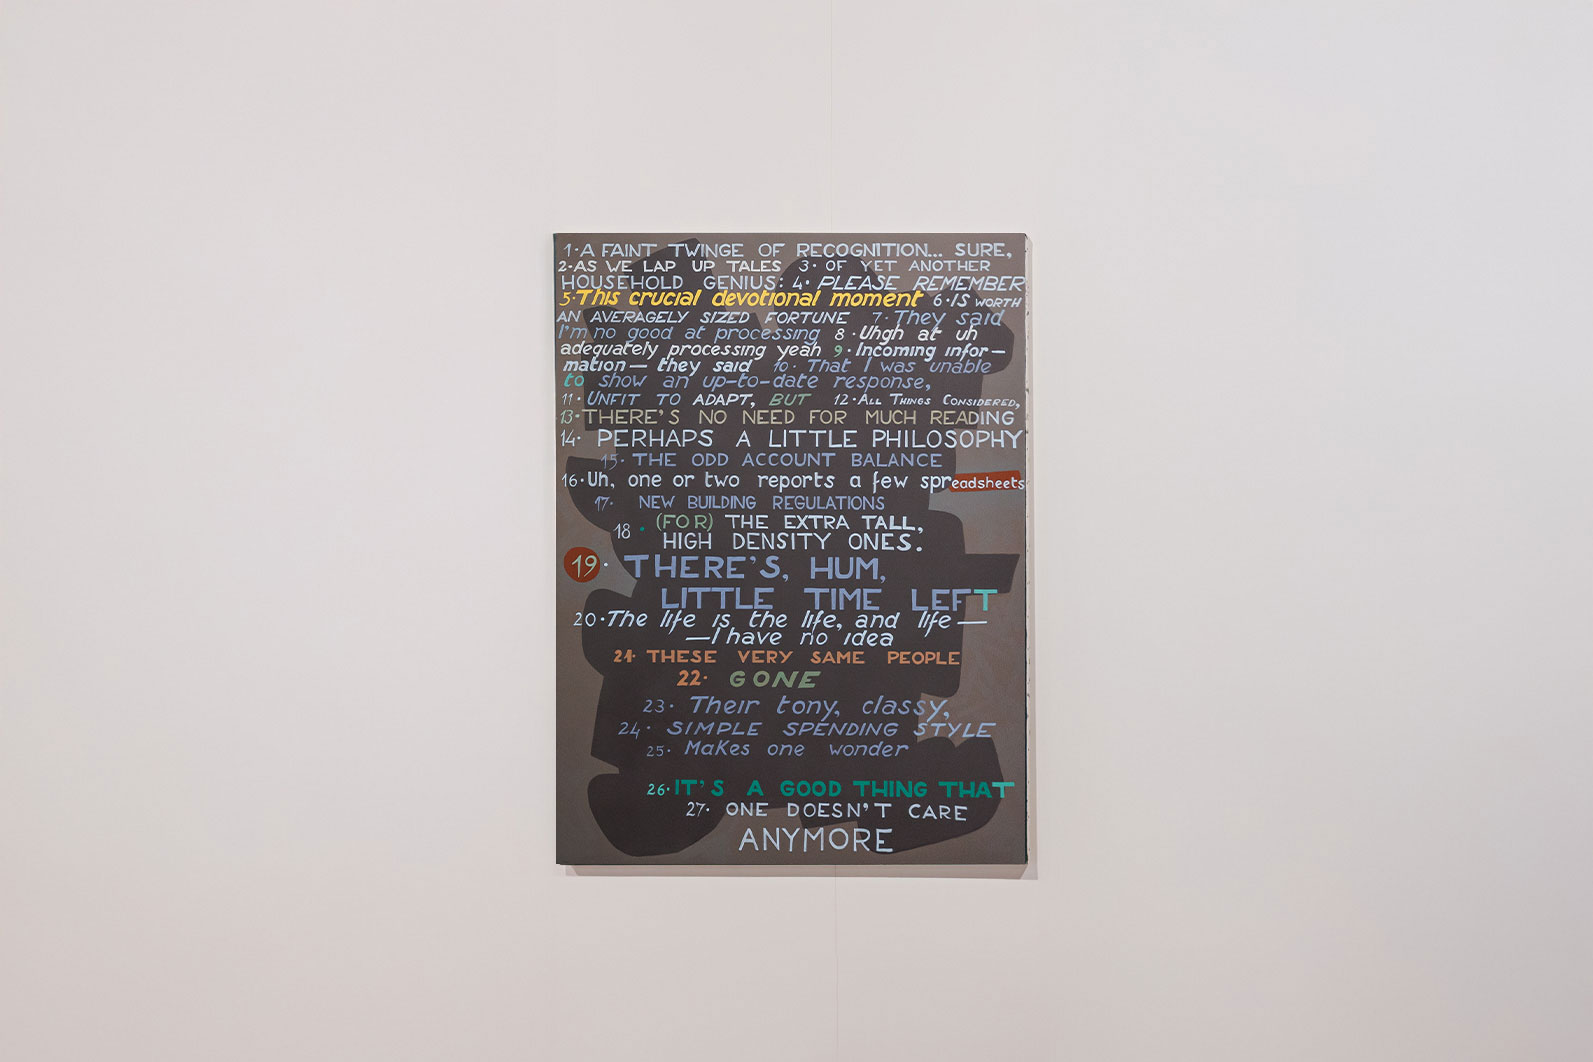 1·A FAINT TWINGE OF RECOGNITION... SURE,
2·AS WE LAP UP TALES 3· OF YET ANOTHER
HOUSEHOLD GENIUS: 4· PLEASE REMEMBER
5·This crucial devotional moment 6·IS WORTH
AN AVERAGELY SIZED FORTUNE 7·They said
I'm no good at processing 8·Uhgh at uh
adequately processing yeah 9·Incoming infor—
mation— they said 10· That I was unable
to show an up-to-date response,
11· UNFIT TO ADAPT, BUT 12·ALL THINGS CONSIDERED,
13·THERE'S NO NEED FOR MUCH READING
14· PERHAPS A LITTLE PHILOSOPHY
15· THE ODD ACCOUNT BALANCE
16·Uh, one or two reports a few spreadsheets
17· NEW BUILDING REGULATIONS
18· (FOR) THE EXTRA TALL,
HIGH DENSITY ONES.
19· THERE'S, HUM,
LITTLE TIME LEFT
20·The life is the life, and life—
—I have no idea
21· THESE VERY SAME PEOPLE
22· GONE
23· Their tony, classy,
24· SIMPLE SPENDING STYLE
25· Makes one wonder
26·IT'S A GOOD THING THAT
27· ONE DOESN'T CARE
ANYMORE